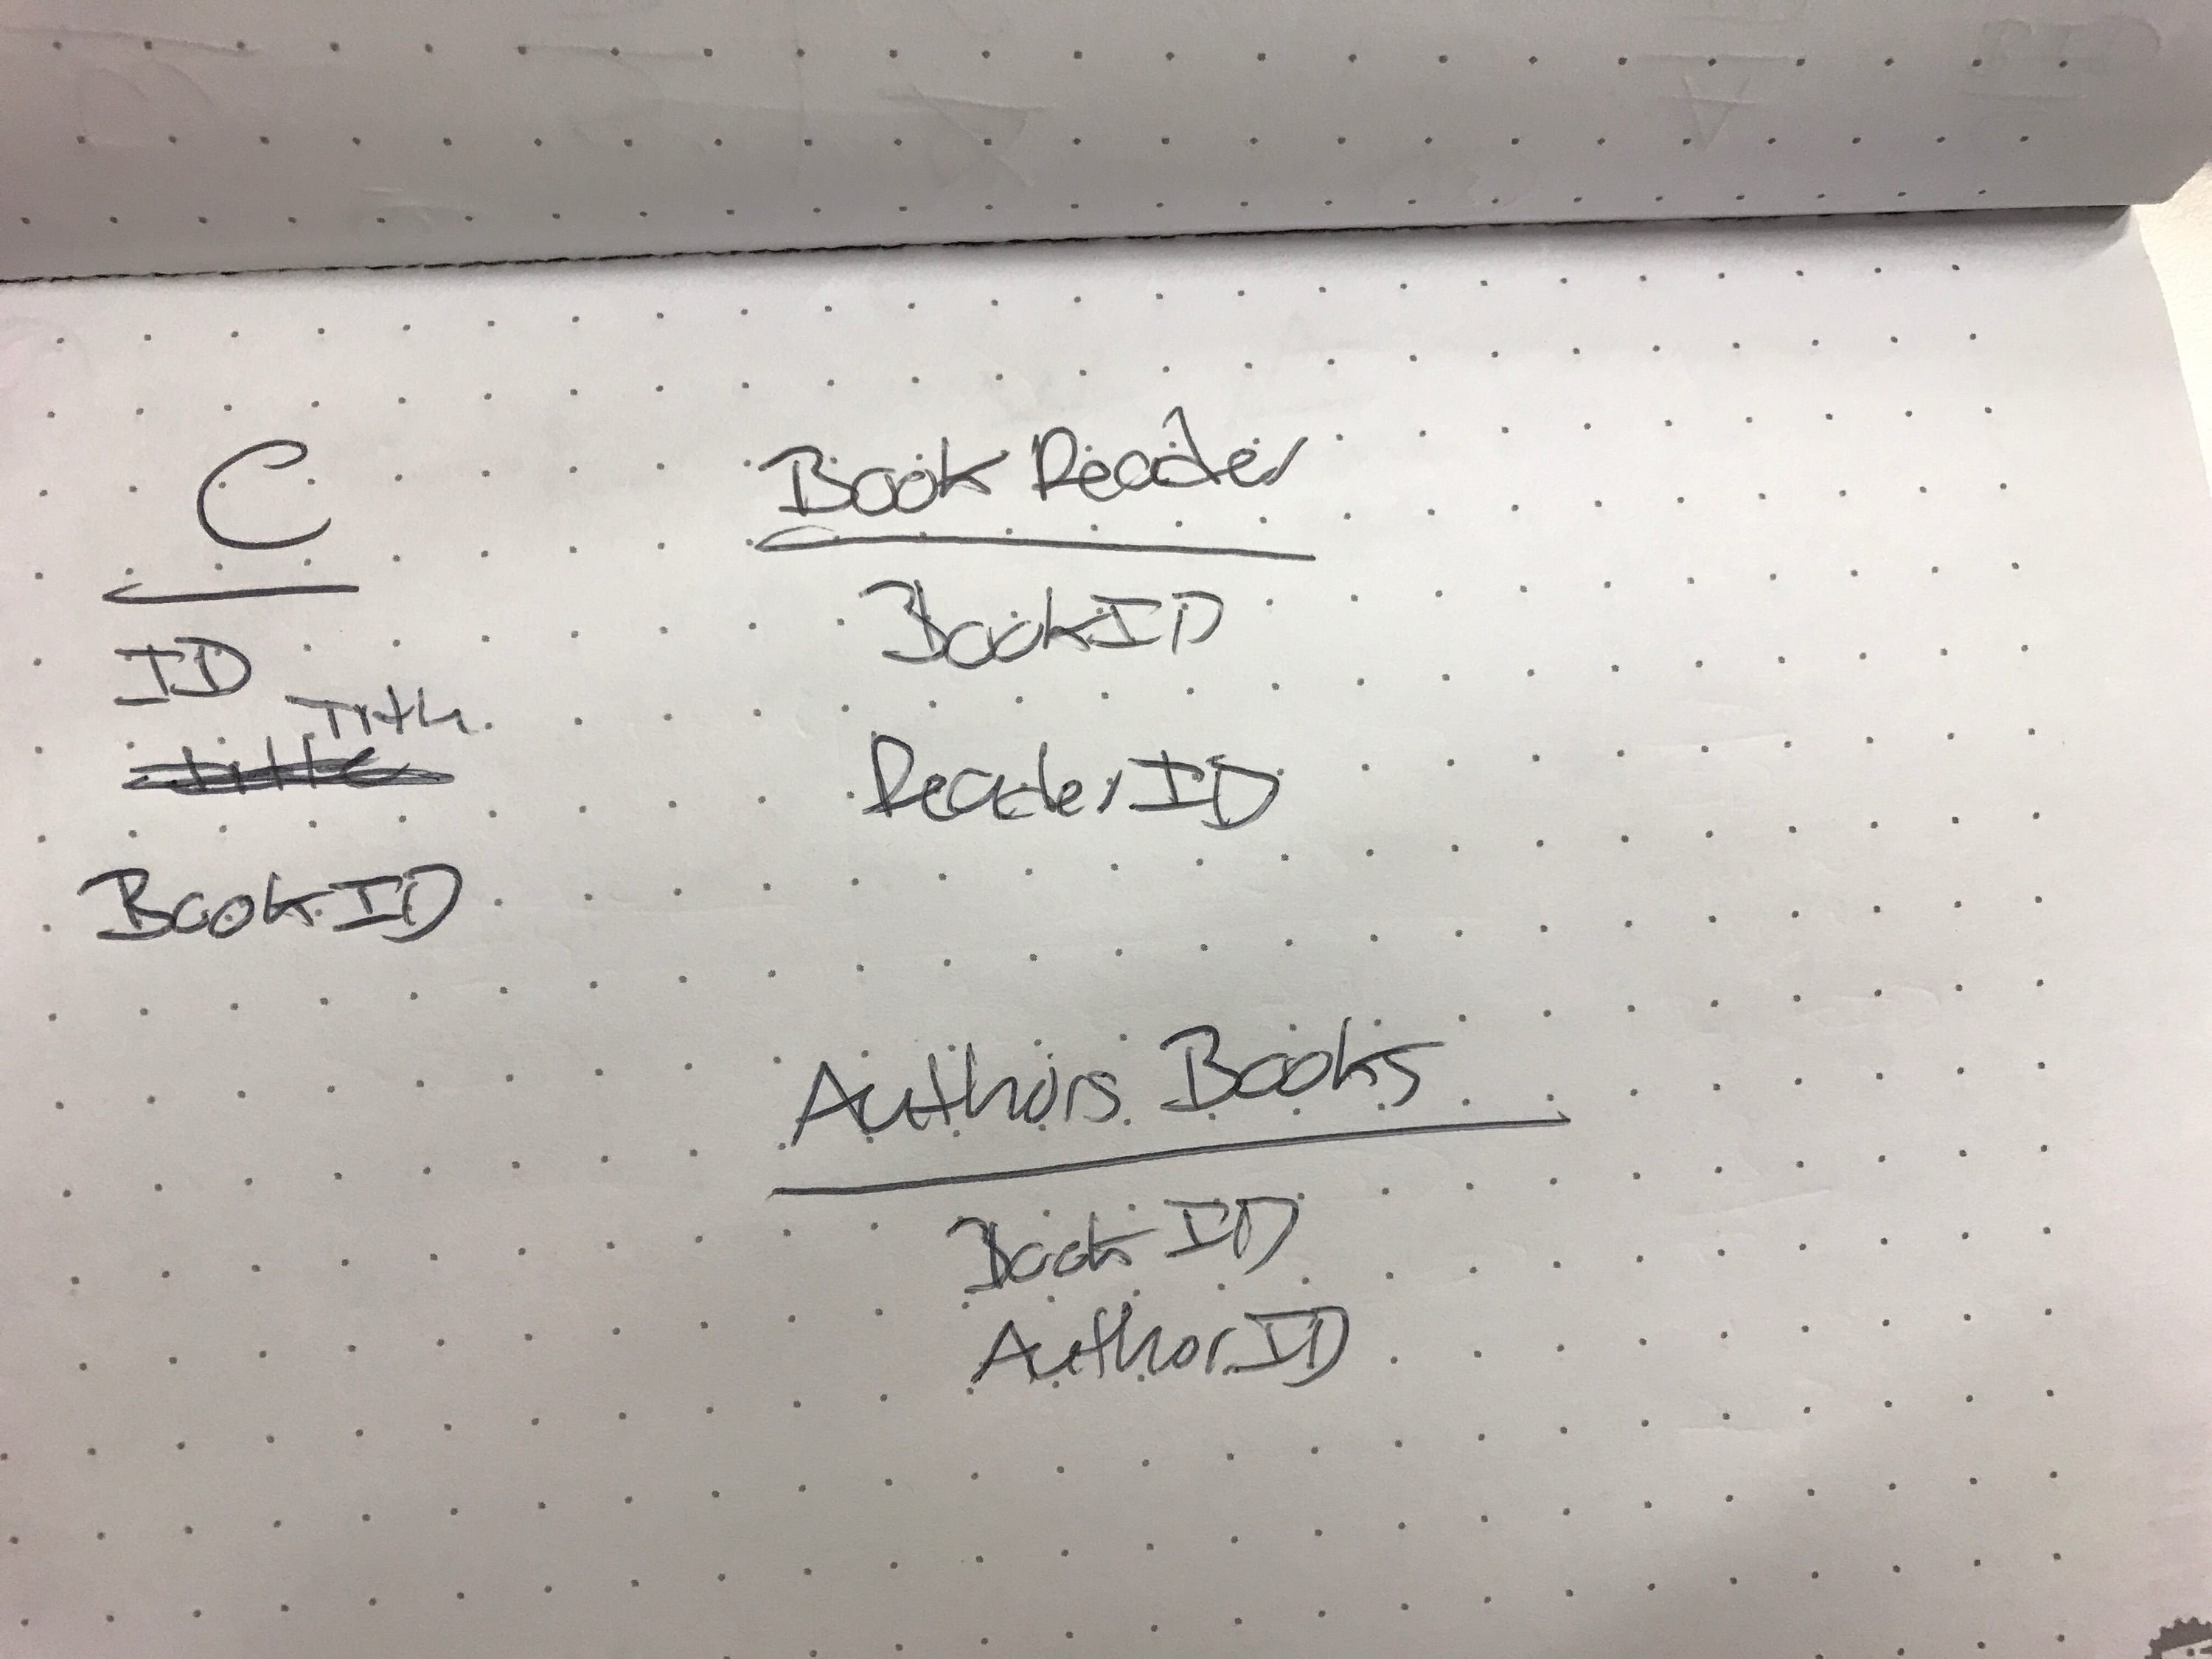 C
ID
Title
BookID
Book Reader
BookID
ReaderID
Authors Books
Book ID
AuthorID